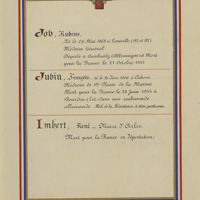 Job, Rubens.
Né le 28 Mai 1868 à Lunéville (M. et M.)
Médecin Général
Déporté à Auschwitz (Allemagne) et Mort
pour la France le 31 Octobre 1944
Jubin, François, né le 31
Médecin de 1ère Classe de la Marine
Mort pour la France le 23 Juin 1944 à
Gourdon (Lot) dans une embuscade
Allemande
Imbert, René — Maire d'Arles.
Mort pour la France en Déportation.